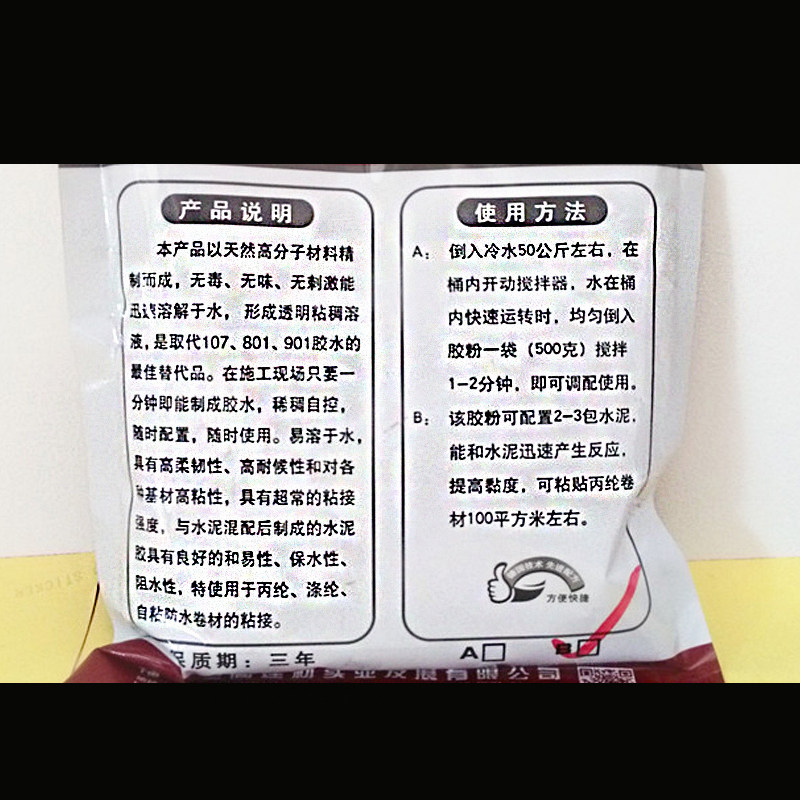 产品说明
本产品以天然高分子材料精
制而成，无毒、无味、无刺激能
迅速溶解于水， 形成透明粘稠溶
液，是取代107、801、901胶水的
最佳替代品。在施工现场只要一
分钟即能制成胶水，稀稠自控，
随时配置，随时使用。易溶于水，
具有高柔韧性、高耐候性和对各
种基材高粘性，具有超常的粘接
强度，与水泥混配后制成的水泥
胶具有良好的和易性、保水性、
阻水性，特使用于丙纶、涤纶、
自粘防水卷材的粘接。
使用方法
A： 倒入冷水50公斤左右，在
桶内开动搅拌器，水在桶
内快速运转时，均匀倒入
胶粉一袋（500克）搅拌
1-2分钟，即可调配使用。
B： 该胶粉可配置2-3包水泥，
能和水泥迅速产生反应，
提高黏度，可粘贴丙纶卷
材100平方米左右。
技术 先进配方
方便快捷
保质期：三年
A□ B□
实业发展有限公司
STICKER